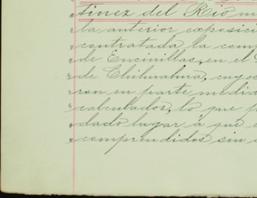 tinez del Rio
la anterior exposici
contratada la com
de Encinillas, en el
de Chihuahua, cuyo
ron en parte medid
calculados, lo que
dado lugar á que
comprendidos sin